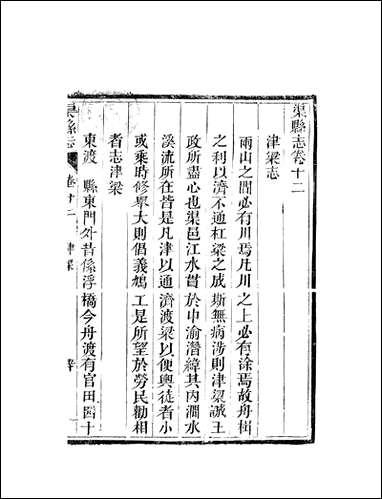 渠縣志卷十二
津梁志
兩山之間必有川焉凡川之上必有涂焉故舟楫
之利以濟不通杠梁之成斯無病涉則津梁誠王
政所盡心也渠邑江水貫於中渝潛緯其內澗水
溪流所在皆是凡津以通濟渡梁以便輿徒者小
或乘時修舉大則倡義鳩工是所望於勞民勸相
者志津梁
東渡 縣東門外昔係浮橋今舟渡有官田四十
渠縣志 卷十二 津梁